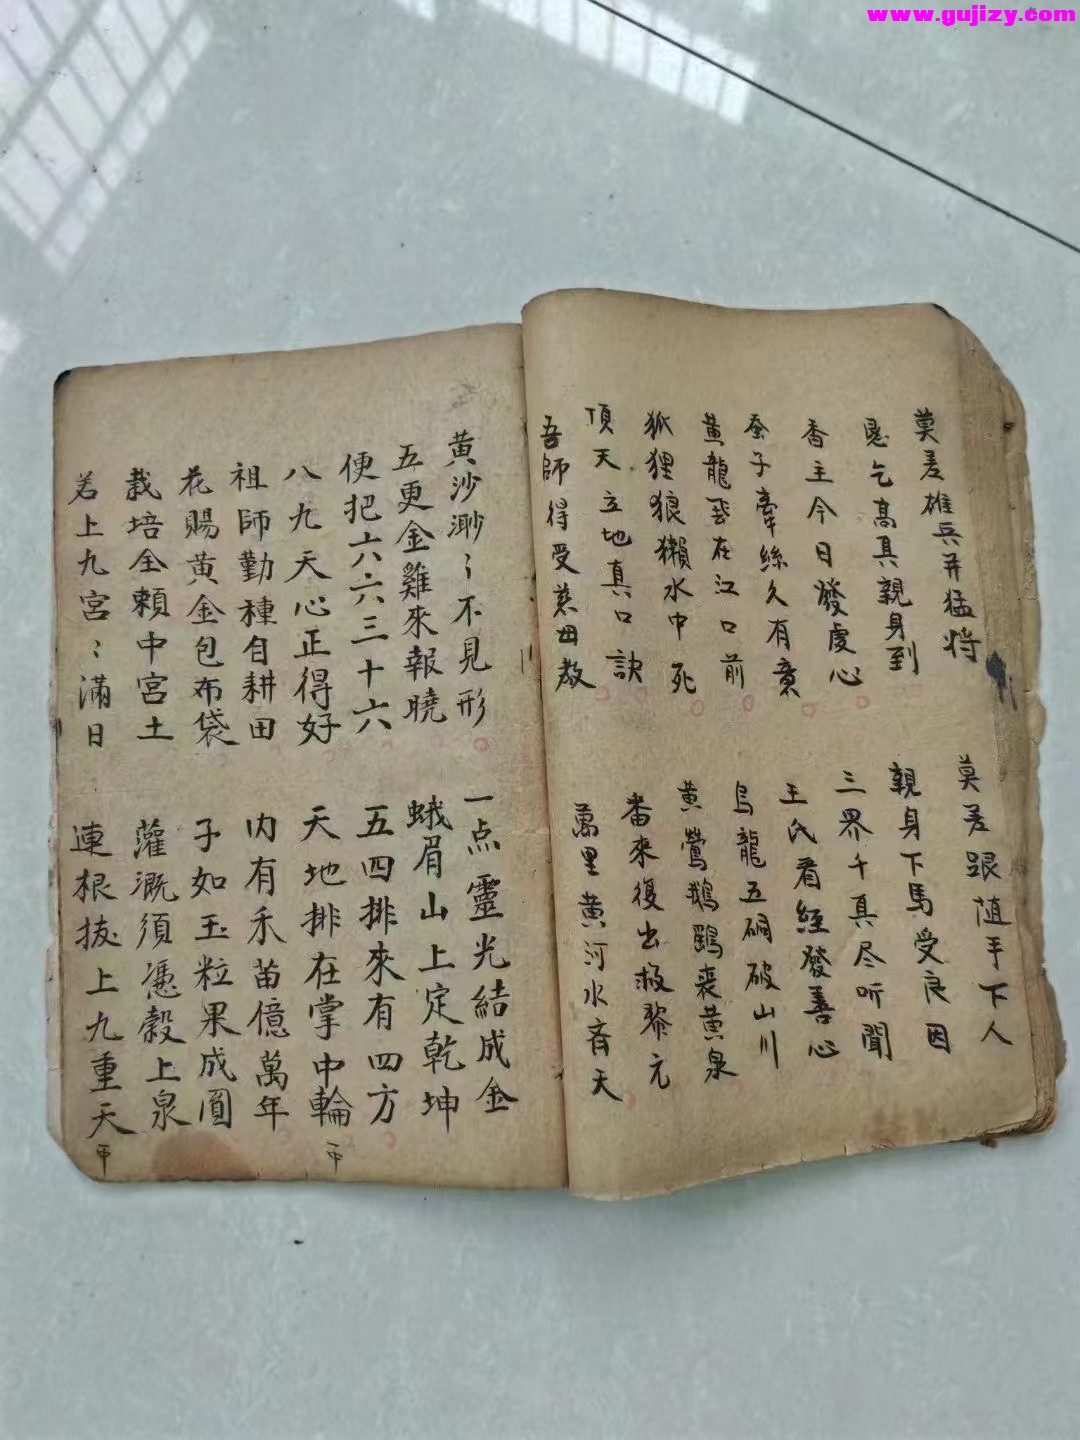 www.gujizy.com
莫差雄兵并猛将
莫差跟随手下人
恳乞高真親身到
親身下馬受良因
香主今日發虔心
三界千真尽听聞
蚕子牽絲久有意
王氏看經發善心
黄龍飛在江口前
烏龍五硐破山川
狐狸狼獺水中死
黄鶯鵝鷄喪黄泉
頂天立地真口訣
番來復出救黎元
吾師得受慈母教
萬里黄河水育天
黄沙渺〻不見形
一点靈光結成金
五更金雞來報曉
蛾眉山上定乾坤
便把六六三十六
五四排來有四方
八九天心正得好
天地排在掌中輪
祖師勤種自耕田
内有禾苗億萬年
花賜黄金包布袋
子如玉粒果成圓
栽培全頼中宮土
灌溉須憑穀上泉
若上九宮〻滿日
連根拔上九重天